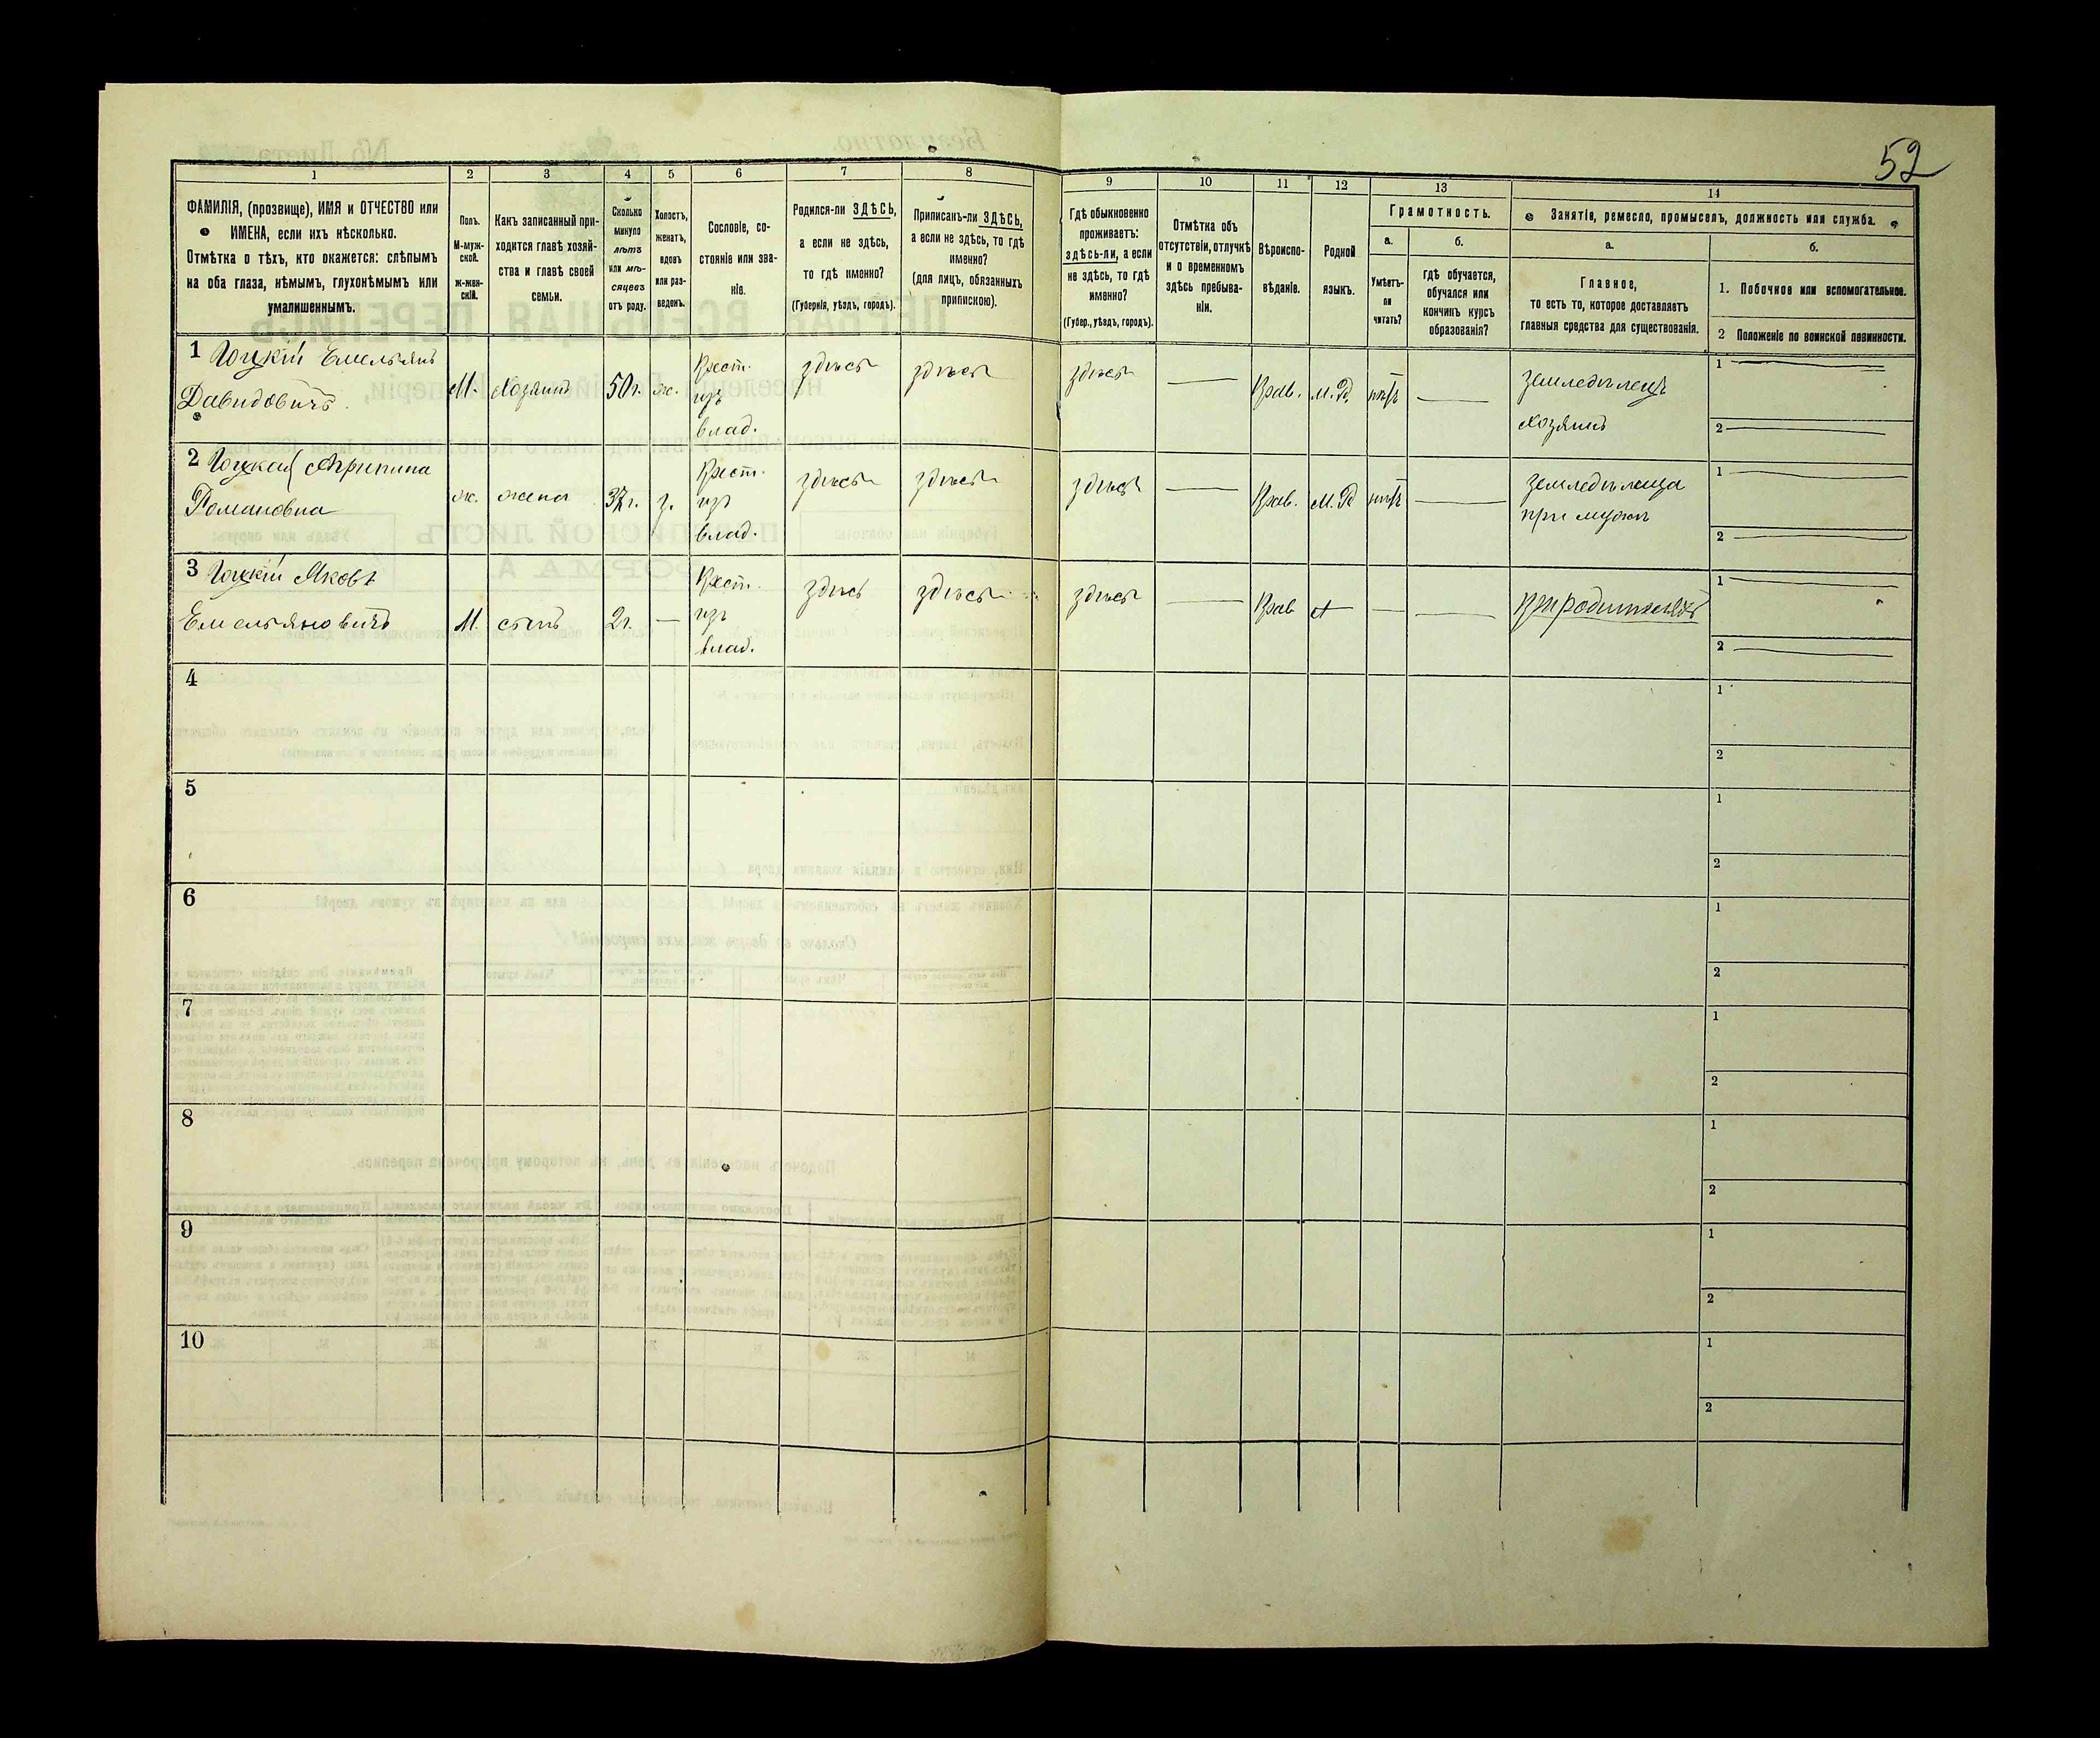 52
1 2 3 4 5 6 7 8 9 10 11 12 13 14
ФАМИЛІЯ, (прозвище), ИМЯ и ОТЧЕСТВО или
ИМЕНА, если ихъ нѣсколько.
Отмѣтка о тѣхъ, кто окажется: слѣпымъ
на оба глаза, нѣмымъ, глухонѣмымъ или
умалишеннымъ.
Полъ.
М-муж-
ской.
Ж-жен-
скій.
Какъ записанный при-
ходится главѣ хозяй-
ства и главѣ своей
семьи.
Сколько
минуло
лѣтъ
или мѣ-
сяцевъ
отъ роду.
Холостъ,
женатъ,
вдовъ
или раз-
веденъ.
Сословіе, со-
стояніе или зва-
ніе.
Родился-ли ЗДѢСЬ,
а если не здѣсь,
то гдѣ именно?
(Губернія, уѣздъ, городъ).
Приписанъ-ли ЗДѢСЬ,
а если не здѣсь, то гдѣ
именно?
(для лицъ, обязанныхъ
припискою).
Гдѣ обыкновенно
проживаетъ:
здѣсь-ли, а если
не здѣсь, то гдѣ
именно?
(Губер., уѣздъ, городъ).
Отмѣтка объ
отсутствіи, отлучкѣ
и о временномъ
здѣсь пребыва-
ніи.
Вѣроиспо-
вѣданіе.
Родной
языкъ.
Грамотность.
а.
Умѣетъ-
ли
читать?
б.
Гдѣ обучается,
обучался или
кончилъ курсъ
образованія?
Занятіе, ремесло, промыселъ, должность или служба.
а.
Главное,
то есть то, которое доставляетъ
главныя средства для существованія.
б.
1. Побочное или вспомогательное.
2 Положеніе по воинской повинности.
1 Емельянъ
Давидовичъ
М. Хозяинъ 50 г. ж.
Крест.
изъ
влад.
здѣсь здѣсь здѣсь — Прав. М.Р. нѣтъ —
земледѣлецъ
хозяинъ
1
2
2 Агрипина
Романовна
ж. жена 37 г. з.
Крест.
изъ
влад.
здѣсь здѣсь здѣсь — Прав. М.Р нѣтъ —
земледѣлица
при мужѣ
1
2
3 Яковъ
Емельяновичъ
М. сынъ 2 г. —
Крест.
изъ
влад.
здѣсь здѣсь здѣсь — Прав — —
при родителяхъ
1
2
4
1
2
5
1
2
6
1
2
7
1
2
8
1
2
9
1
2
10
1
2